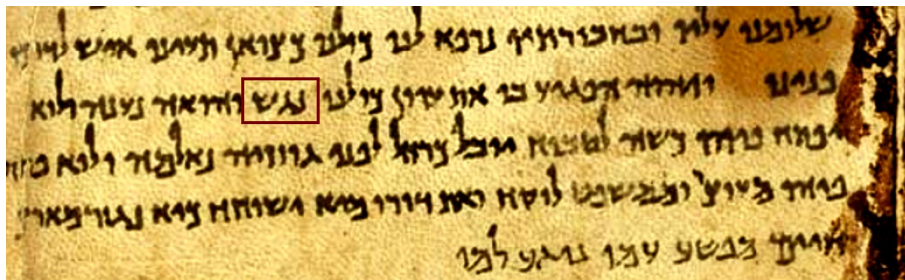 שלומנו עליו ובחבורתיו נרפא לנו כולנו כצואן תעינו איש
פנינו ויהוה הפגיע בו את עוון כולנו נגש והואה נענה ולוא
יפתח פיהו כשה לטבוח יובל כרחל לפני גוזזיה נאלמה ולוא
פיהו מעוצר וממשפט לוקח ואת דורו מיא ישוחח כיא נגזר מארץ
חיים מפשע עמו נוגע למו